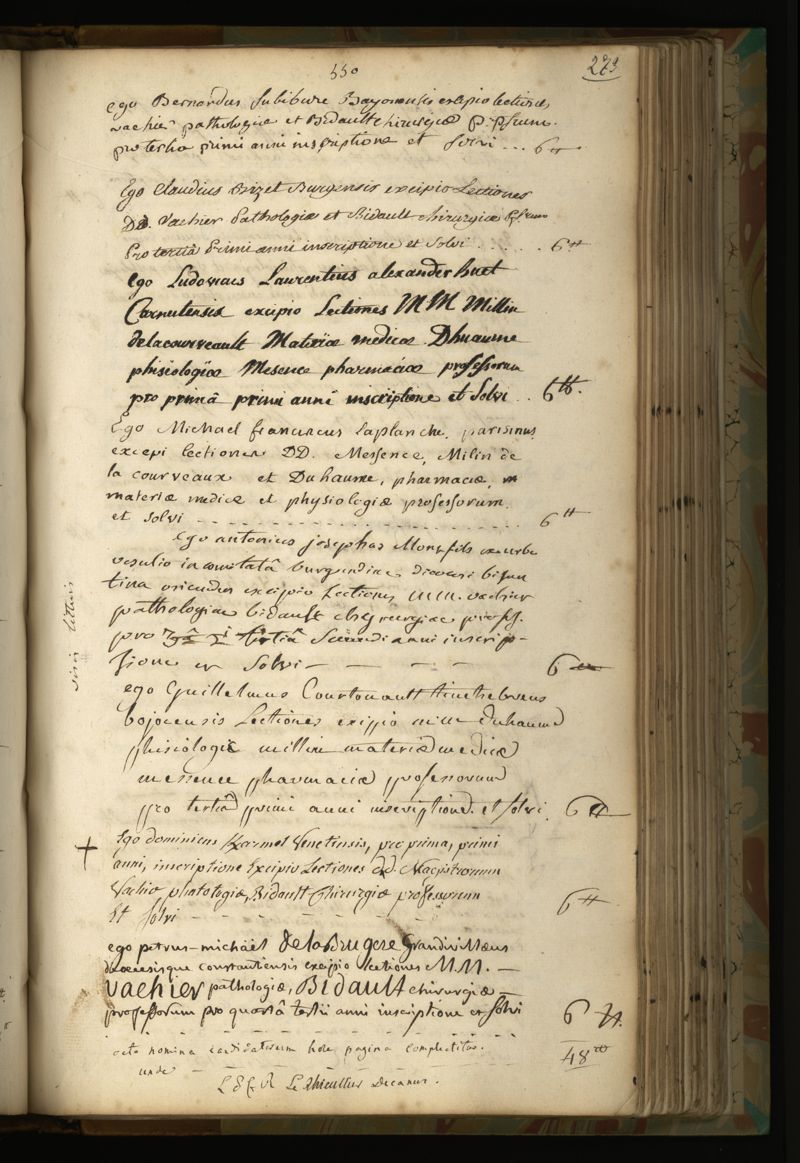 550
273
ego Bernardus Subibure Bayonensis excipio lectiones
vachier pathologiæ et Bidault chirurgiæ p.pssrum.
pro tertia primi anni inscriptione et solvi ... 6 tt
Ego Claudius Bizet Burgensis excipio Lectiones
DD. Vachier Pathologiæ et Bidault chirurgiæ
Pro tertiâ Primi anni inscriptione et Solvi . . . . . . 6 tt
Ego Ludovicus Laurentius alexander huet
Carnutensis excipio Lectiones MM Millin
delacourveault Materiæ medicæ Dhuaume
phisiologiæ Mesence pharmaciæ professorum
pro primâ primi anni inscriptione et Solvi . . 6 tt.
Ego Michael franciscus laplanche, parisinus,
excepi lectiones DD. Messence, Milin de
la courveaux et Duhaume, pharmaciæ,
materiæ medicæ et physiologiæ professorum
et solvi - - - - - - - - - - - - 6 tt
Ego antonius josephus Monsfils ex urbe
vesulio in comitatû burgundiæ diocesi bisun
tina oriundus excipio Lectiones mm. vachier
pathologiæ bidault chyrurgiæ profess.
pro tertiâ Secundi anni inscrip-
tione et Solvi — — — — 6 tt
ego Guillelmus Courtouault
bojocensis Lectiones exipio mm duhaume
phisiologiæ millin materiæ medicæ
messence pharmaciæ professorum
pro tertiâ primi anni inscriptione et solvi. 6 tt
Ego dominicus Karmel Venetensis, pro prima, primi
anni, inscriptione Excipio Lectiones dd. Magistrorum
Vachier phatologiæ, Bidault Chirurgiæ professorum
Et solvi - - - - - - 6 tt
ego petrus-michaël delaBrugere Grandivillæus
diœcesisque constantiensis excipio lectiones M.M. —
Vachier pathologiæ, Bidault chirurgiæ —
professorum pro quartâ tertii anni inscriptione et solvi 6 tt.
octo nomina candidatorum hæc pagina complectitur.
unde — — — — — 48 tt
Le Thieullier Decanus.